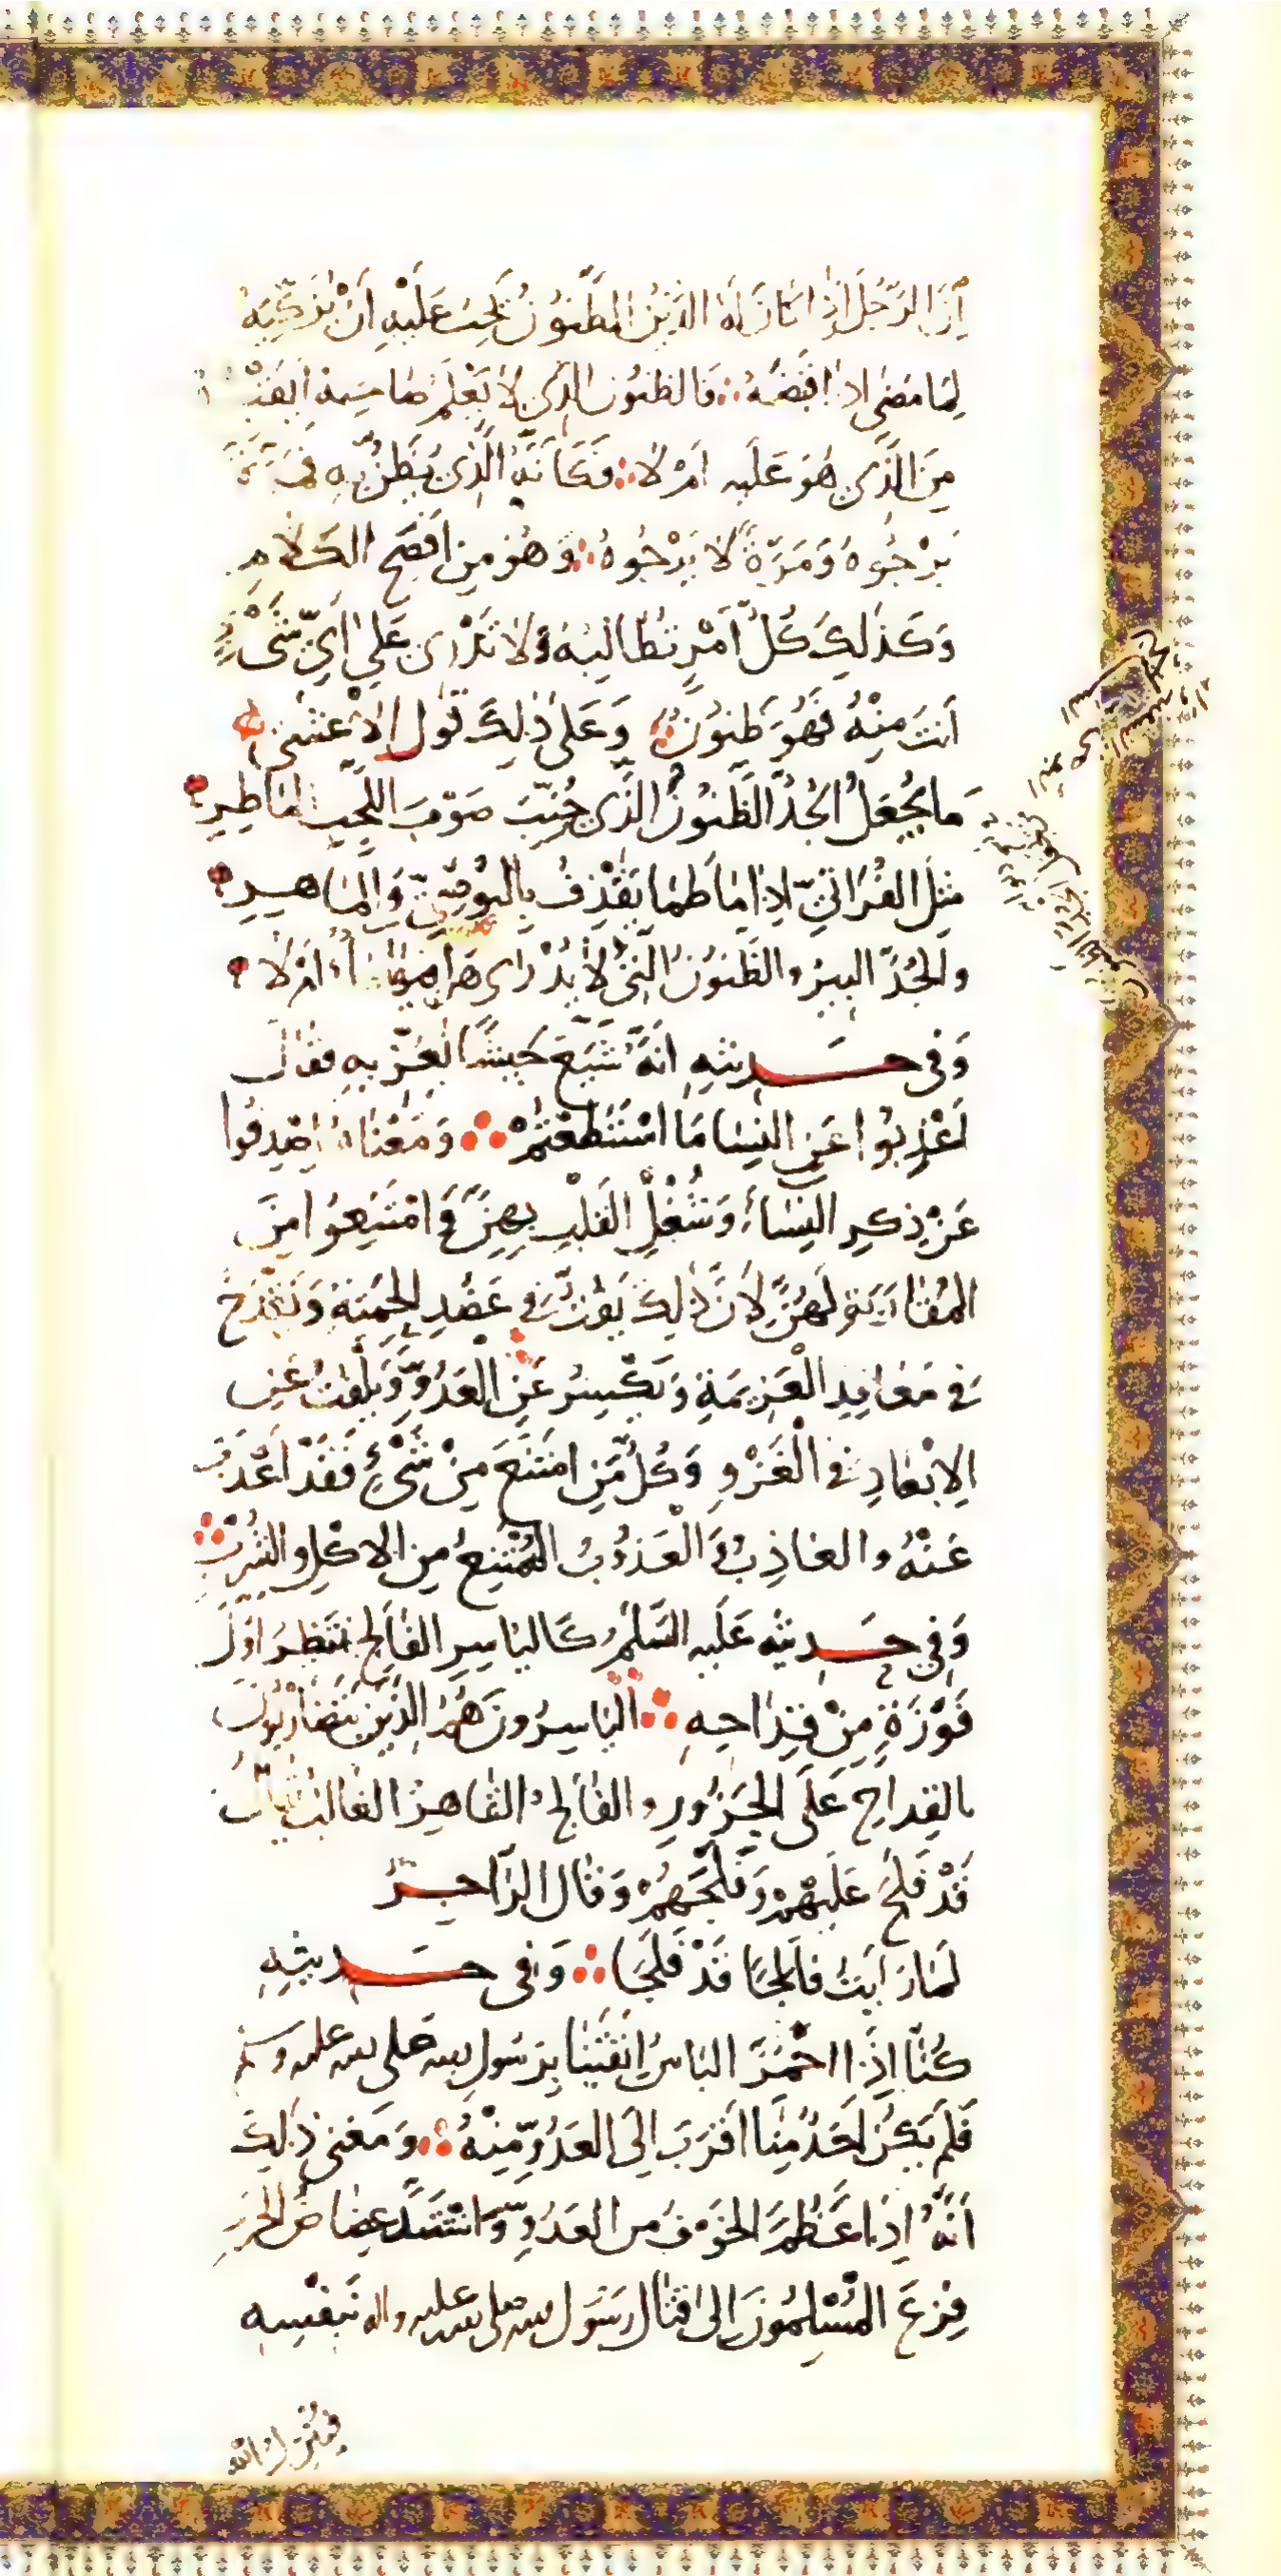 اِنَّ الرَّجُلَ اِذَا كَانَ لَهُ الدَّيْنُ الظَّنُونُ يَجِبُ عَلَيْهِ اَنْ يُزَكِّيَهُ
لِمَا مَضٰى اِذَا قَبَضَهُ فَالظَّنُونُ الَّذِي لَا يَعْلَمُ صَاحِبُهُ اَيَقْضِيهِ
مِنَ الَّذِي هُوَ عَلَيْهِ اَمْ لَا فَكَاَنَّهُ الَّذِي يُظَنُّ بِهِ فَمَرَّةً
يَرْجُوهُ وَمَرَّةً لَا يَرْجُوهُ وَهُوَ مِنْ اَفْصَحِ الكَلَامِ
وَكَذٰلِكَ كُلُّ اَمْرٍ تُطَالِبُهُ وَلَا تَدْرِي عَلٰى اَيِّ شَيْءٍ
اَنْتَ مِنْهُ فَهُوَ ظَنُونٌ وَعَلٰى ذٰلِكَ قَوْلُ الْاَعْشٰى
مَا يُجْعَلُ الْجُدُّ الظَّنُونُ الَّذِي جُنِّبَ صَوْبَ اللَّجِبِ الْمَاطِرِ
مِثْلَ الْفُرَاتِيِّ اِذَا مَا طَمَا يَقْذِفُ بِالْبُوصِيِّ وَالْمَاهِرِ
وَالْجُدُّ الْبِئْرُ وَالظَّنُونُ الَّتِي لَا يُدْرٰى هَلْ فِيهَا مَاءٌ اَمْ لَا
وَفِي حَدِيثِهِ اَنَّهُ شَيَّعَ جَيْشًا يُغْزِيهِ فَقَالَ
اَعْذِبُوا عَنِ النِّسَا مَا اسْتَطَعْتُمْ وَمَعْنَاهُ اِصْدِفُوا
عَنْ ذِكْرِ النِّسَاءِ وَشُغْلِ الْقَلْبِ بِهِنَّ وَامْتَنِعُوا مِنَ
الْمُقَارَبَةِ لَهُنَّ لِاَنَّ ذٰلِكَ يَفُتُّ فِي عَضُدِ الْحَمِيَّةِ وَيَقْدَحُ
فِي مَعَاقِدِ الْعَزِيمَةِ وَيَكْسِرُ عَنِ الْعَدُوِّ وَيَلْفِتُ عَنِ
الْاِبْعَادِ فِي الْغَزْوِ وَكُلُّ مَنِ امْتَنَعَ مِنْ شَيْءٍ فَقَدْ اَعْذَبَ
عَنْهُ وَالْعَاذِبُ وَالْعَذُوبُ الْمُمْتَنِعُ مِنَ الْاَكْلِ وَالشُّرْبِ
وَفِي حَدِيثِهِ عَلَيْهِ السَّلٰمُ كَالْيَاسِرِ الْفَالِجِ يَنْتَظِرُ اَوَّلَ
فَوْزَةٍ مِنْ قِدَاحِهِ الْيَاسِرُونَ هُمُ الَّذِينَ يَتَضَارَبُونَ
بِالْقِدَاحِ عَلَى الْجَزُورِ وَالْفَالِجُ الْقَاهِرُ الْغَالِبُ يُقَالُ
قَدْ فَلَجَ عَلَيْهِمْ وَفَلَجَهُمْ وَقَالَ الرَّاجِزُ
لَمَّا رَاَيْتُ فَالِجًا قَدْ فَلَجَا وَفِي حَدِيثِهِ
كُنَّا اِذَا احْمَرَّ الْبَاْسُ اتَّقَيْنَا بِرَسُولِ اللهِ صَلَّى اللهُ عَلَيْهِ وَسَلَّمَ
فَلَمْ يَكُنْ اَحَدٌ مِنَّا اَقْرَبَ اِلَى الْعَدُوِّ مِنْهُ وَمَعْنٰى ذٰلِكَ
اَنَّهُ اِذَا عَظُمَ الْخَوْفُ مِنَ الْعَدُوِّ وَاشْتَدَّ عِضَاضُ الْحَرْبِ
فَزِعَ الْمُسْلِمُونَ اِلٰى قِتَالِ رَسُولِ اللهِ صَلَّى اللهُ عَلَيْهِ وَاٰلِهِ بِنَفْسِهِ
فَيُنْزِلُ اللهُ